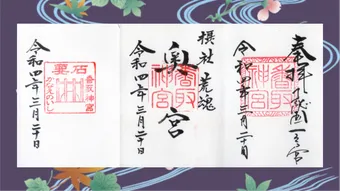 奉拝
下総國一之宮
香取神宮
令和四年三月二十日
摂社 荒魂
奥宮
香取神宮
令和四年三月二十日
香取神宮
かなめいし
令和四年三月二十日